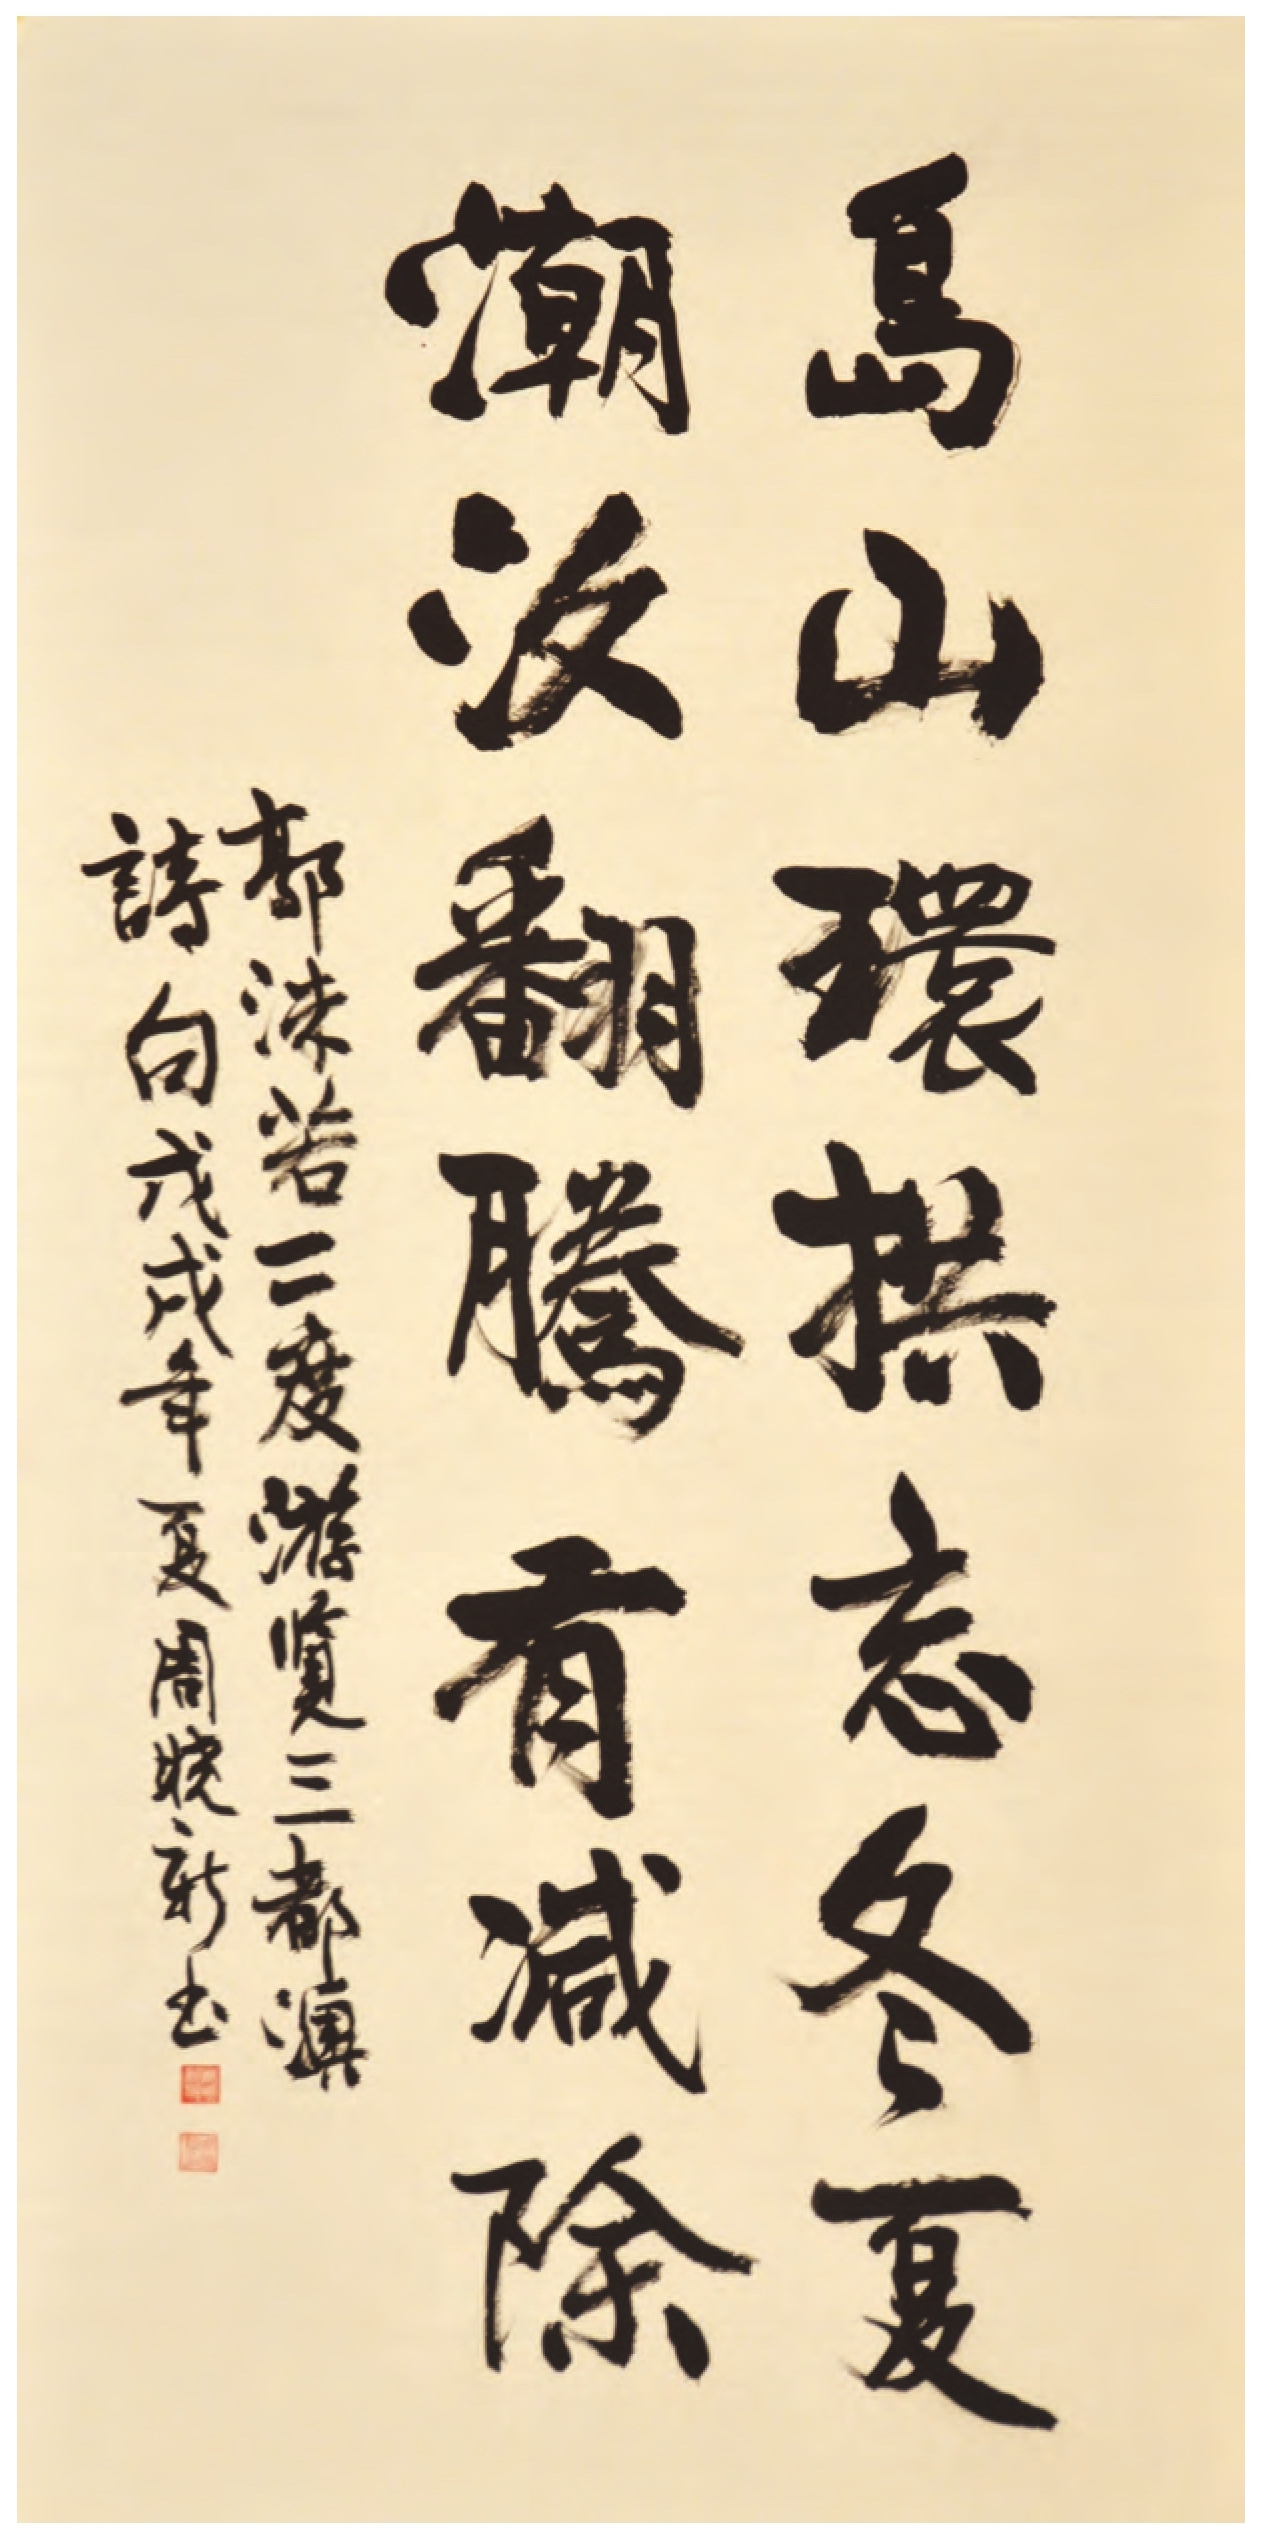 島山環拱忘冬夏
潮汐翻騰有減除
郭沫若二度游覽三都澳
詩句戊戌年夏周曉新书